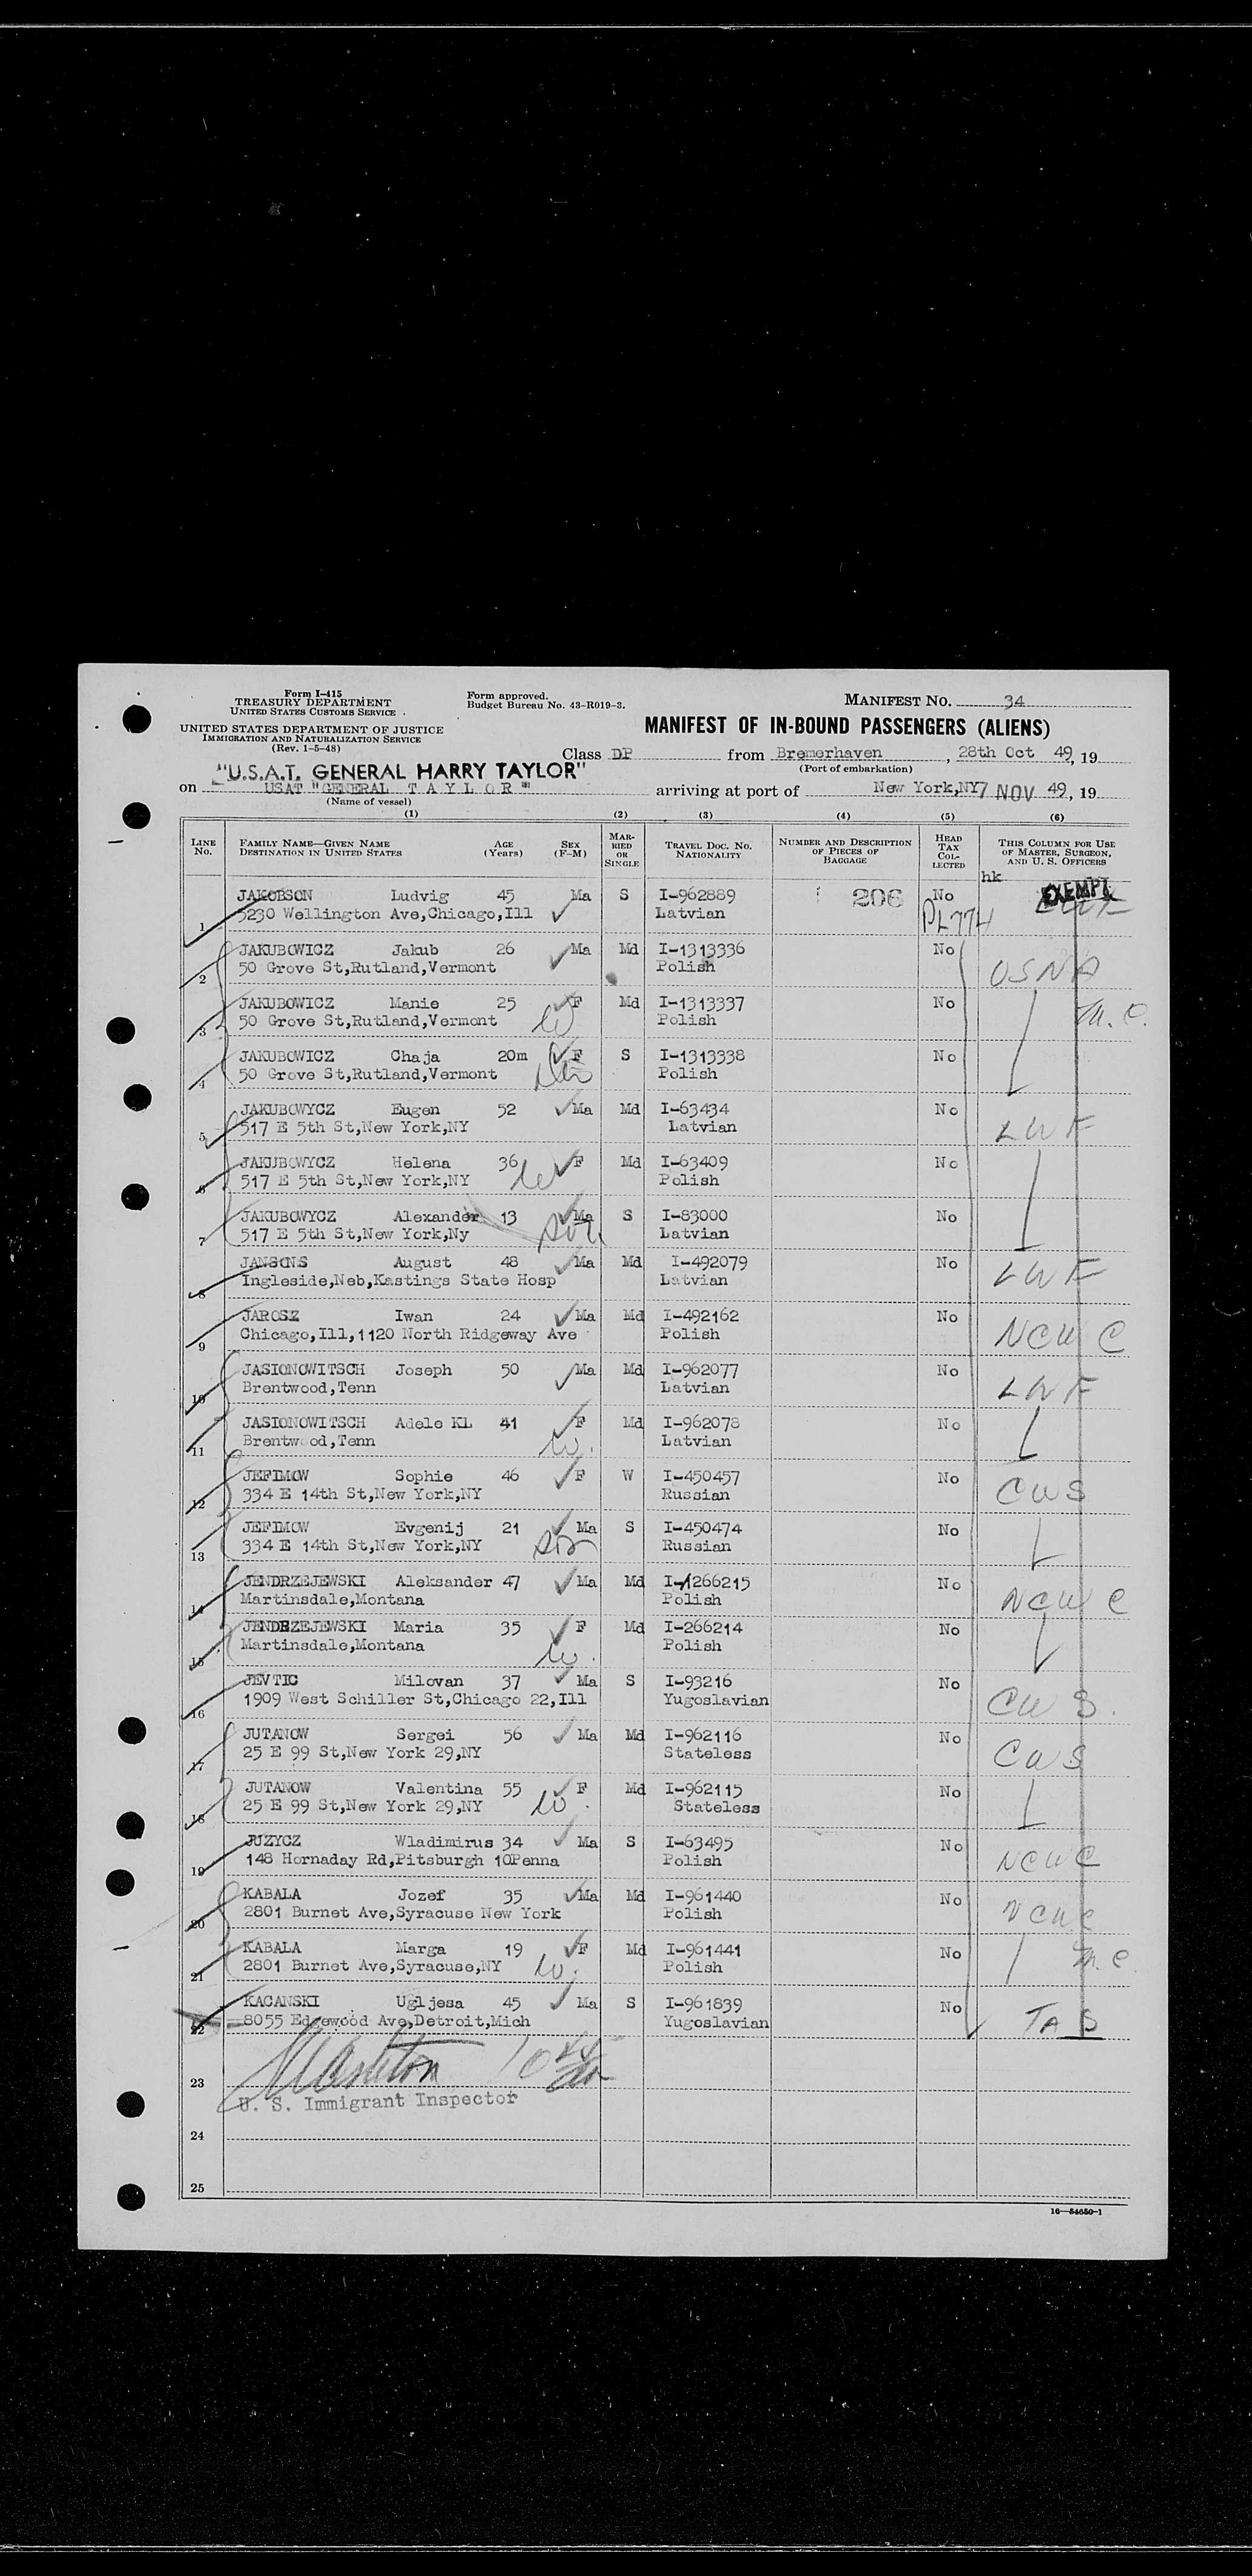 Form I-415
TREASURY DEPARTMENT
UNITED STATES CUSTOMS SERVICE
Form approved.
Budget Bureau No. 43-R019-3.
MANIFEST NO. 34
UNITED STATES DEPARTMENT OF JUSTICE
IMMIGRATION AND NATURALIZATION SERVICE
(Rev. 1-5-48)
MANIFEST OF IN-BOUND PASSENGERS (ALIENS)
Class DP from Bremerhaven, 28th Oct 49, 19
(Port of embarkation)
"U.S.A.T. GENERAL HARRY TAYLOR"
on USAT "GENERAL T A Y L O R" arriving at port of New York,NY 7 NOV 49, 19
(Name of vessel)
(1) (2) (3) (4) (5) (6)
LINE No. FAMILY NAME—GIVEN NAME DESTINATION IN UNITED STATES AGE (Years) SEX (F-M) MARRIED OR SINGLE TRAVEL DOC. NO. NATIONALITY NUMBER AND DESCRIPTION OF PIECES OF BAGGAGE HEAD TAX COLLECTED THIS COLUMN FOR USE OF MASTER, SURGEON, AND U. S. OFFICERS
hk
1 JAKOBSON Ludvig 45 Ma S I-962889 206 No EXEMPT
5230 Wellington Ave,Chicago,Ill Latvian PL774 LWF
2 JAKUBOWICZ Jakub 26 Ma Md I-1313336 No
50 Grove St,Rutland,Vermont Polish USNA
3 JAKUBOWICZ Manie 25 F Md I-1313337 No
50 Grove St,Rutland,Vermont W Polish M.C.
4 JAKUBOWICZ Chaja 20m F S I-1313338 No
50 Grove St,Rutland,Vermont Polish
5 JAKUBOWYCZ Eugen 52 Ma Md I-63434 No
517 E 5th St,New York,NY Latvian LWF
6 JAKUBOWYCZ Helena 36 F Md I-63409 No
517 E 5th St,New York,NY W Polish
7 JAKUBOWYCZ Alexander 13 Ma S I-83000 No
517 E 5th St,New York,Ny son Latvian
8 JANSONS August 48 Ma Md I-492079 No
Ingleside,Neb,Kastings State Hosp Latvian LWF
9 JAROSZ Iwan 24 Ma Md I-492162 No
Chicago,Ill,1120 North Ridgeway Ave Polish NCWC
10 JASIONOWITSCH Joseph 50 Ma Md I-962077 No
Brentwood,Tenn Latvian LWF
11 JASIONOWITSCH Adele KL 41 F Md I-962078 No
Brentwood,Tenn W. Latvian
12 JEFIMOW Sophie 46 F W I-450457 No
334 E 14th St,New York,NY Russian CWS
13 JEFIMOW Evgenij 21 Ma S I-450474 No
334 E 14th St,New York,NY son Russian
14 JENDRZEJEWSKI Aleksander 47 Ma Md I-1266215 No
Martinsdale,Montana Polish NCWC
15 JENDRZEJEWSKI Maria 35 F Md I-266214 No
Martinsdale,Montana W. Polish
16 JEVTIC Milovan 37 Ma S I-93216 No
1909 West Schiller St,Chicago 22,Ill Yugoslavian CWS.
17 JUTANOW Sergei 56 Ma Md I-962116 No
25 E 99 St,New York 29,NY Stateless CWS
18 JUTANOW Valentina 55 F Md I-962115 No
25 E 99 St,New York 29,NY W. Stateless
19 JUZYCZ Wladimirus 34 Ma S I-63495 No
148 Hornaday Rd,Pitsburgh 10Penna Polish NCWC
20 KABALA Jozef 35 Ma Md I-961440 No
2801 Burnet Ave,Syracuse New York Polish NCWC
21 KABALA Marga 19 F Md I-961441 No
2801 Burnet Ave,Syracuse,NY W. Polish M.C.
22 KACANSKI Ugljesa 45 Ma S I-961839 No
8055 Edgewood Ave,Detroit,Mich Yugoslavian TAS
23
U. S. Immigrant Inspector
24
25
16—54650-1